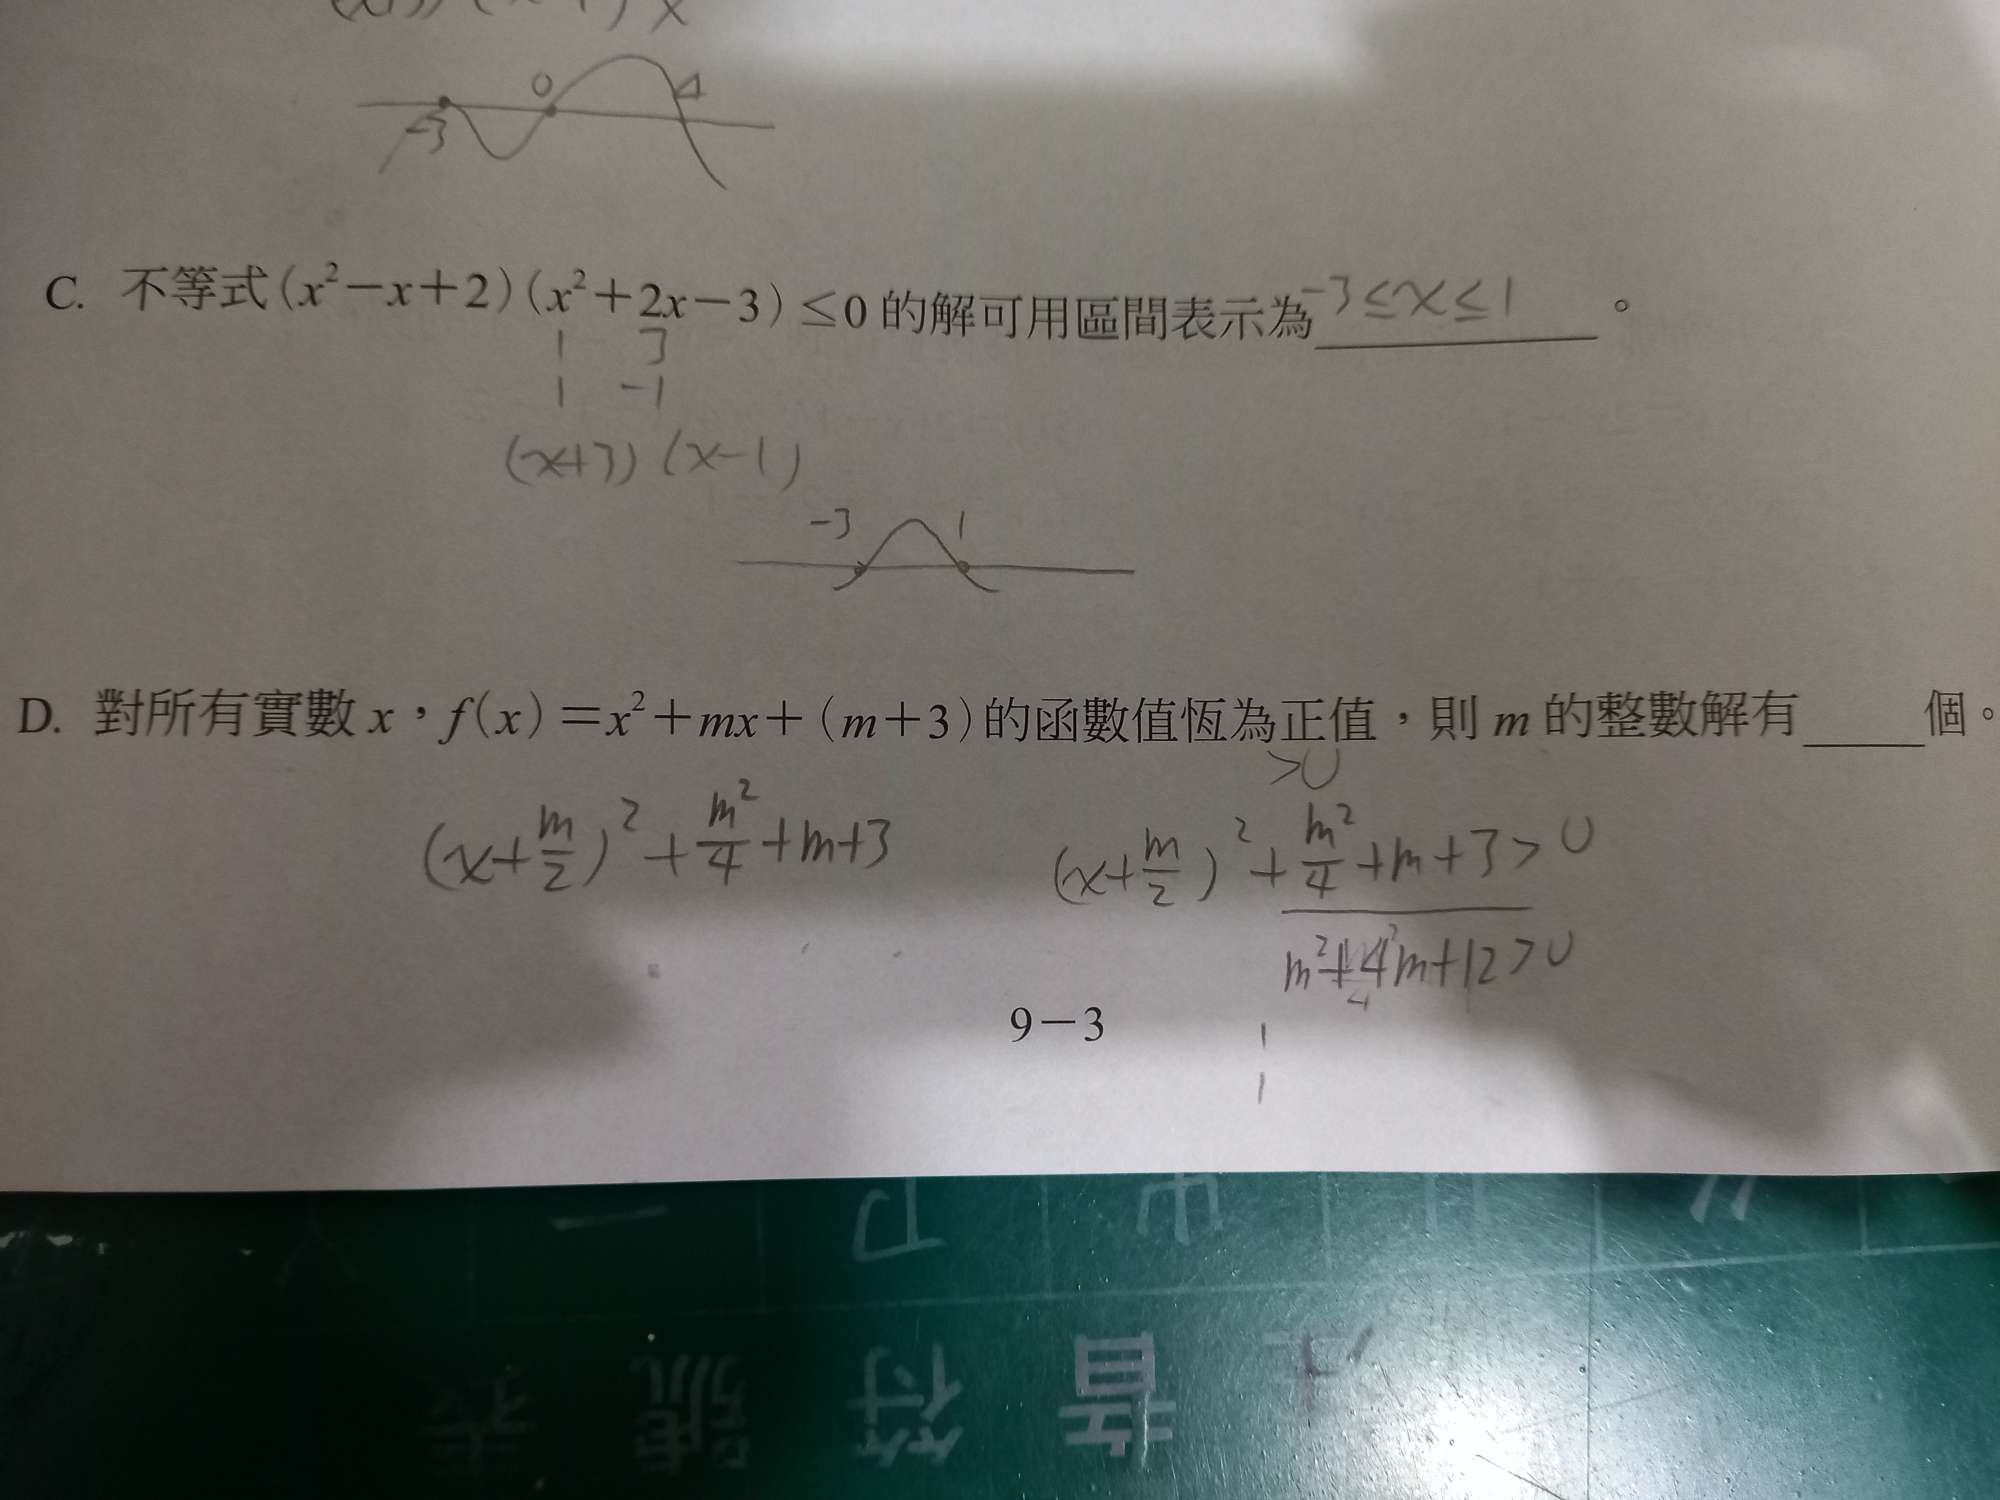 -3 0 4
C. 不等式(x²-x+2)(x²+2x-3)≤0的解可用區間表示為-3≤x≤1。
1 3
1 -1
(x+3)(x-1)
-3 1
D. 對所有實數x，f(x)=x²+mx+(m+3)的函數值恆為正值，則m的整數解有____個。
>0
(x+m/2)²+m²/4+m+3 (x+m/2)²+m²/4+m+3>0
m²+4m+12>0
4
9-3
1
1
符
首